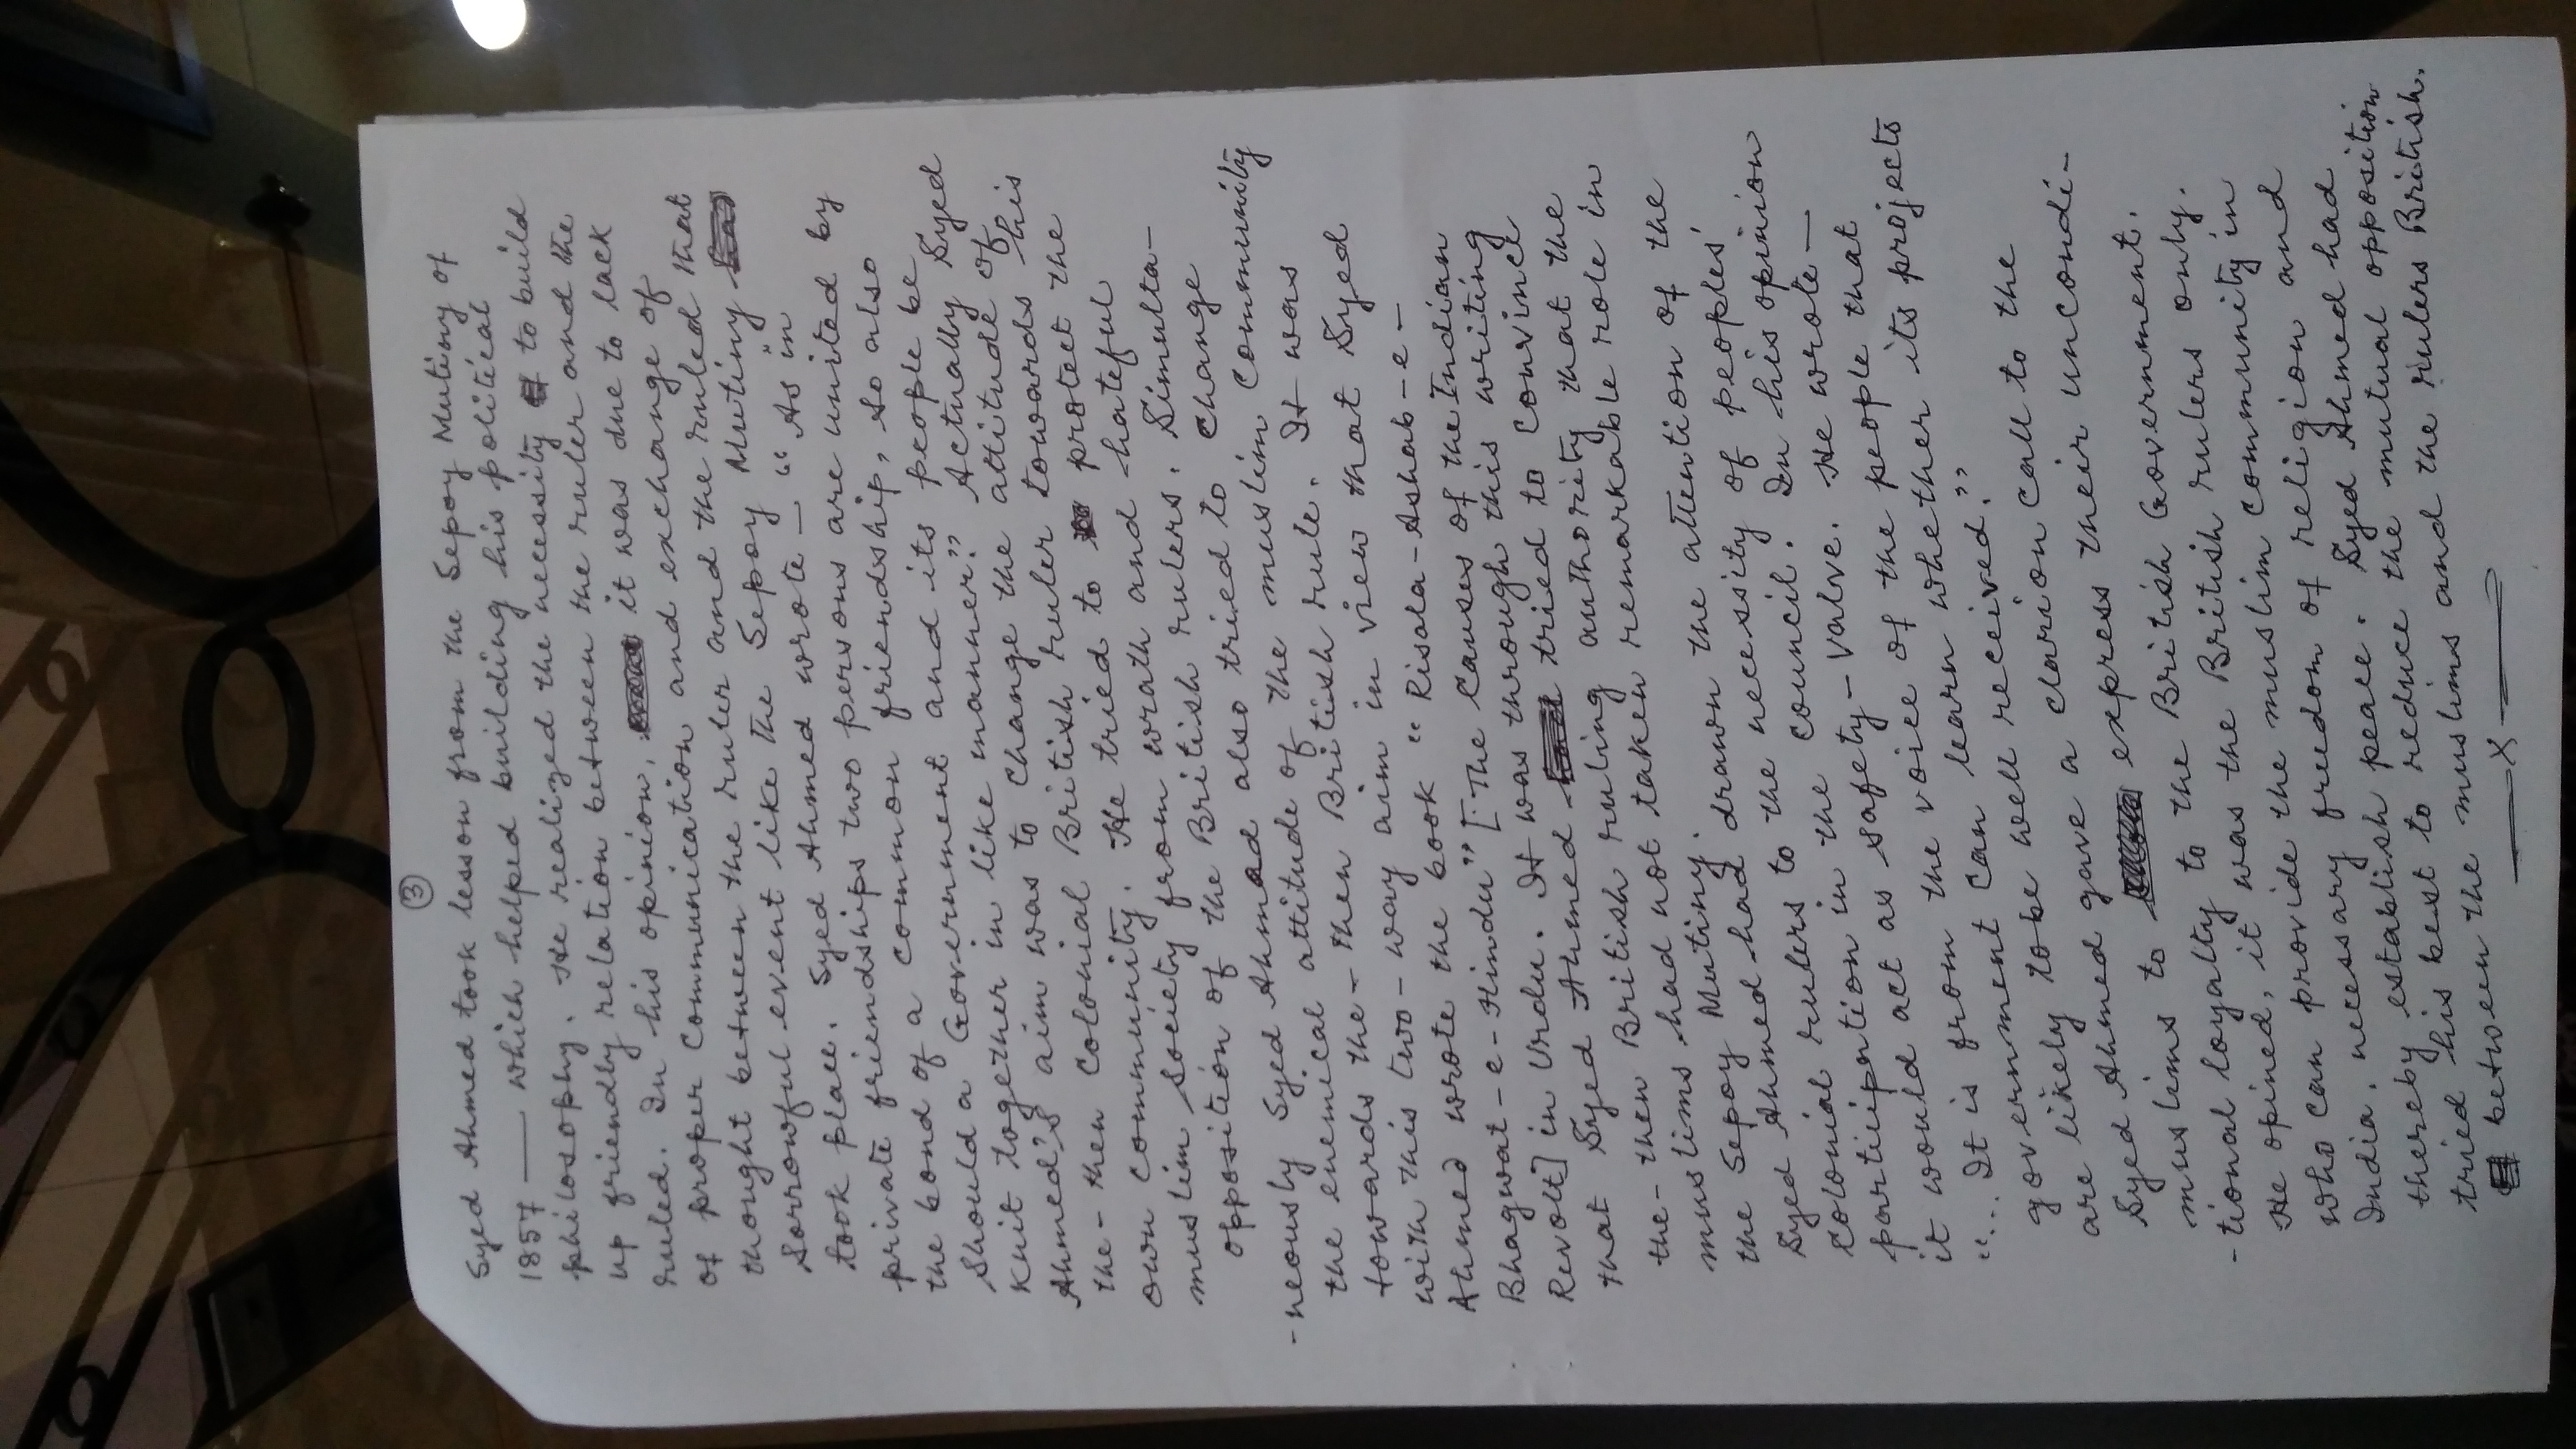 ③
Syed Ahmed took lesson from the Sepoy Mutiny of
1857 — which helped building his political
philosophy. He realized the necessity to build
up friendly relation between the ruler and the
ruled. In his opinion, it was due to lack
of proper communication and exchange of
thought between the ruler and the ruled that
sorrowful event like the Sepoy Mutiny
took place. Syed Ahmed wrote — "As in
private friendships two persons are united by
the bond of a common friendship, so also
should a Government and its people be
knit together in like manner." Actually Syed
Ahmed's aim was to change the attitude of
the-then colonial British ruler towards his
own community. He tried to protect the
muslim society from wrath and hateful
opposition of the British rulers. Simulta-
-neously Syed Ahmad also tried to change
the enemical attitude of the muslim community
towards the-then British rule. It was
with this two-way aim in view that Syed
Ahmed wrote the book "Risala-Ashab-e-
Bhagwat-e-Hindu" [The Causes of the Indian
Revolt] in Urdu. It was through this writing
that Syed Ahmed tried to convince
the-then British ruling authority that the
muslims had not taken remarkable role in
the Sepoy Mutiny.
Syed Ahmed had drawn the attention of the
colonial rulers to the necessity of peoples'
participation in the council. In his opinion
it would act as safety-valve. He wrote —
"... It is from the voice of the people that
government can learn whether its projects
are likely to be well received."
Syed Ahmed gave a clarion call to the
muslims to express their uncondi-
-tional loyalty to the British Government.
He opined, it was the British rulers only.
who can provide the muslim community in
India. necessary freedom of religion and
thereby establish peace. Syed Ahmed had
tried his best to reduce the mutual opposition
between the muslims and the rulers British.
—x—